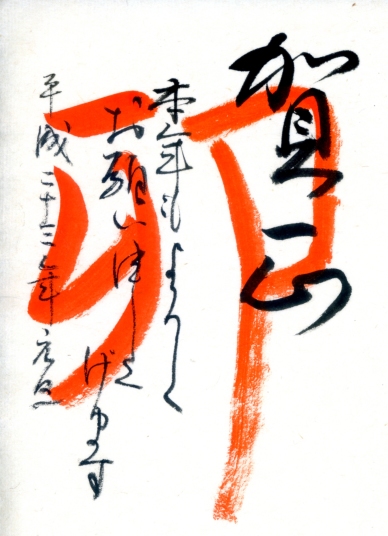 賀正
卯
本年もよろしく
お願い申し上
げます
平成二十三年元旦